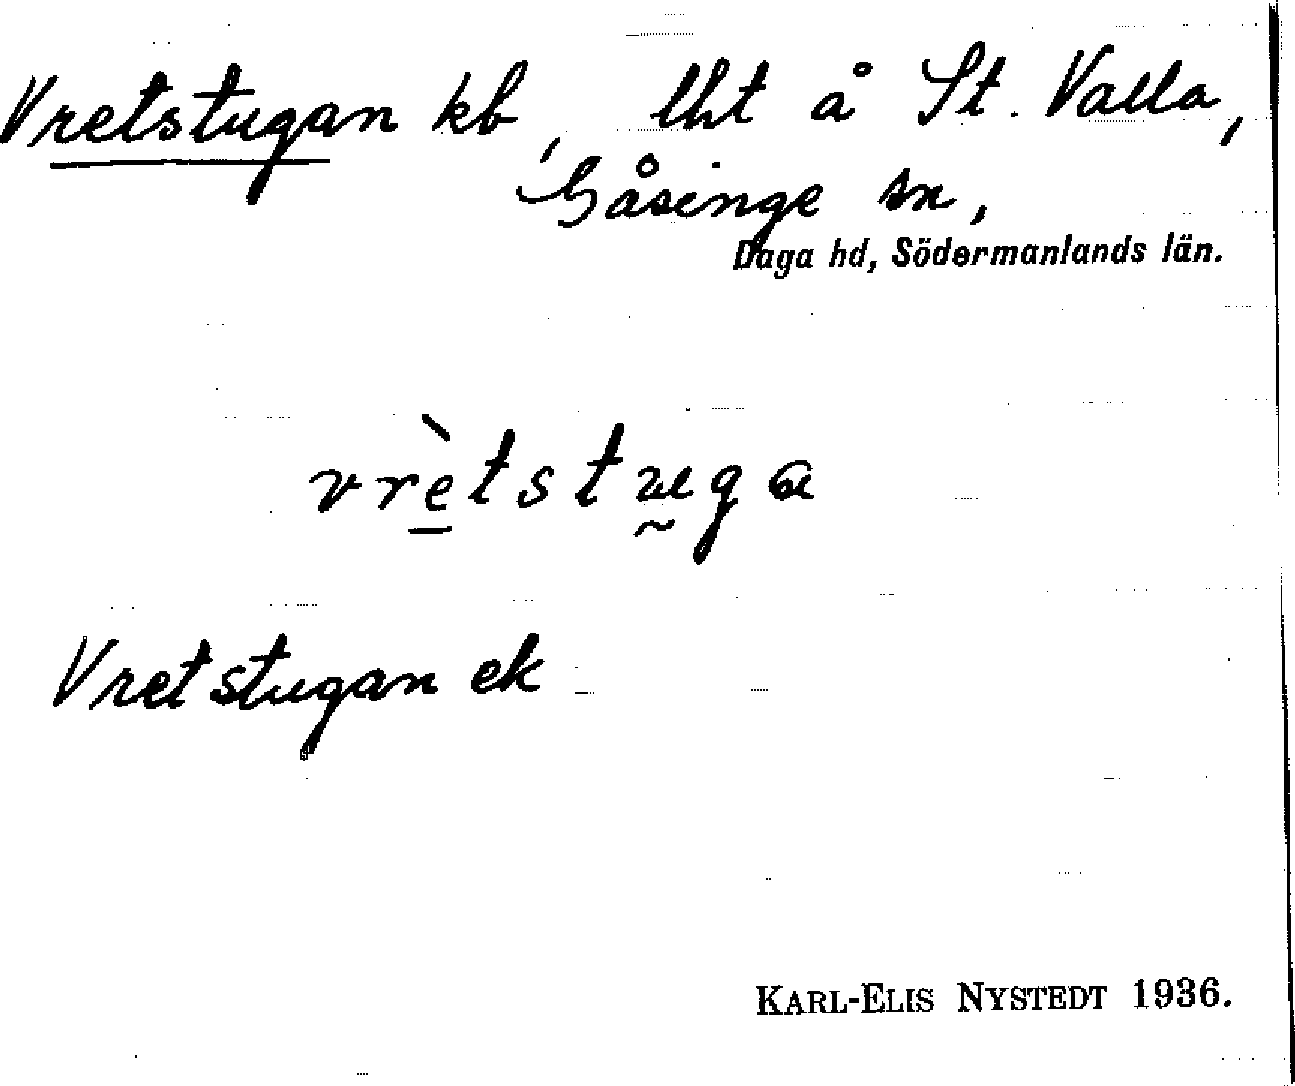 Vretstugan kb, lht å St. Valla,
Gåsinge sn,
Daga hd, Södermanlands län.
vrètstuga
Vretstugan ek
KARL-ELIS NYSTEDT 1936.